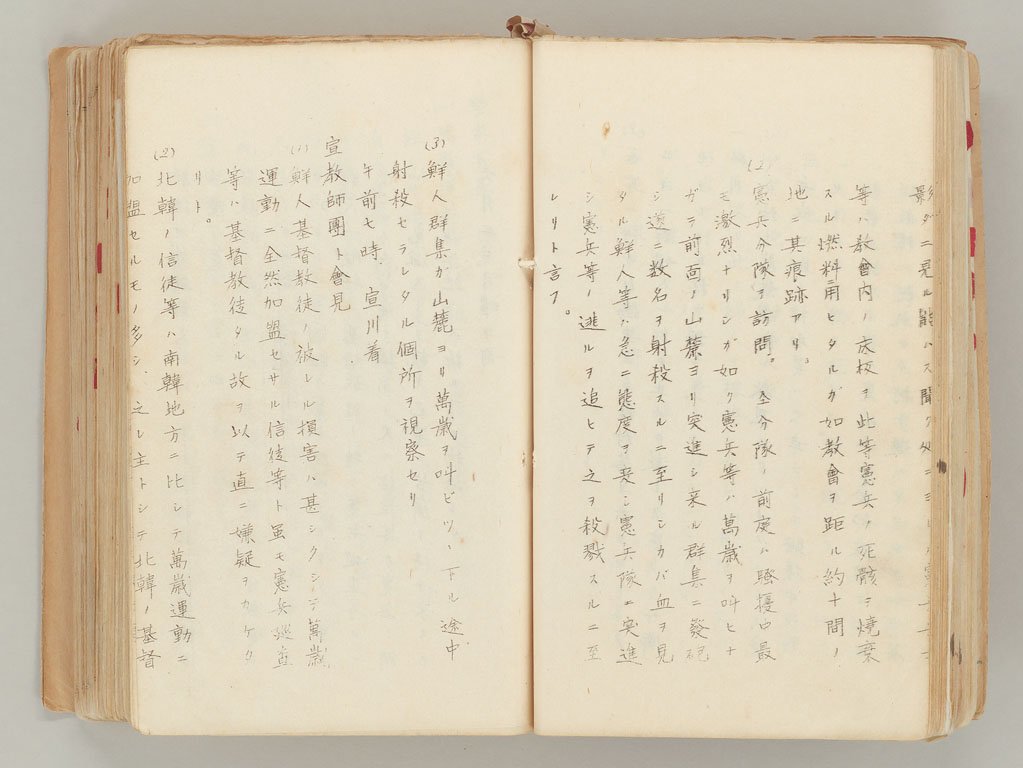 影ダニ見ル能ハス聞ク処ニヨレハ
等ハ教會内ノ床板ヲ此等憲兵ノ死骸ヲ燒棄
スル燃料ニ用ヒタルガ如教會ヲ距ル約十間ノ
地ニ其痕跡アリ。
(2)憲兵分隊ヲ訪問。仝分隊ノ前庭ハ騒擾中最
モ激烈ナリシガ如ク憲兵等ハ萬歳ヲ叫ヒナ
ガラ前面ノ山麓ヨリ突進シ来ル群集ニ發砲
シ遂ニ数名ヲ射殺スルニ至リシカバ血ヲ見
タル鮮人等ハ急ニ態度ヲ変シ憲兵隊ニ突進
シ憲兵等ノ逃ルヲ追ヒテ之ヲ殺戮スルニ至
レリト言フ。
(3)鮮人群集ガ山麓ヨリ萬歳ヲ叫ビツヽ下ル途中
射殺セラレタル個所ヲ視察セリ
午前七時、宣川着
宣教師團ト會見
(1)鮮人基督教徒ノ被レル損害ハ甚シクシテ萬歳
運動ニ全然加盟セサル信徒等ト虽モ憲兵巡査
等ハ基督教徒タル故ヲ以テ直ニ嫌疑ヲカケタ
リト。
(2)北韓ノ信徒等ハ南韓地方ニ比シテ萬歳運動ニ
加盟セルモノ多シ、之レ主トシテ北韓ノ基督